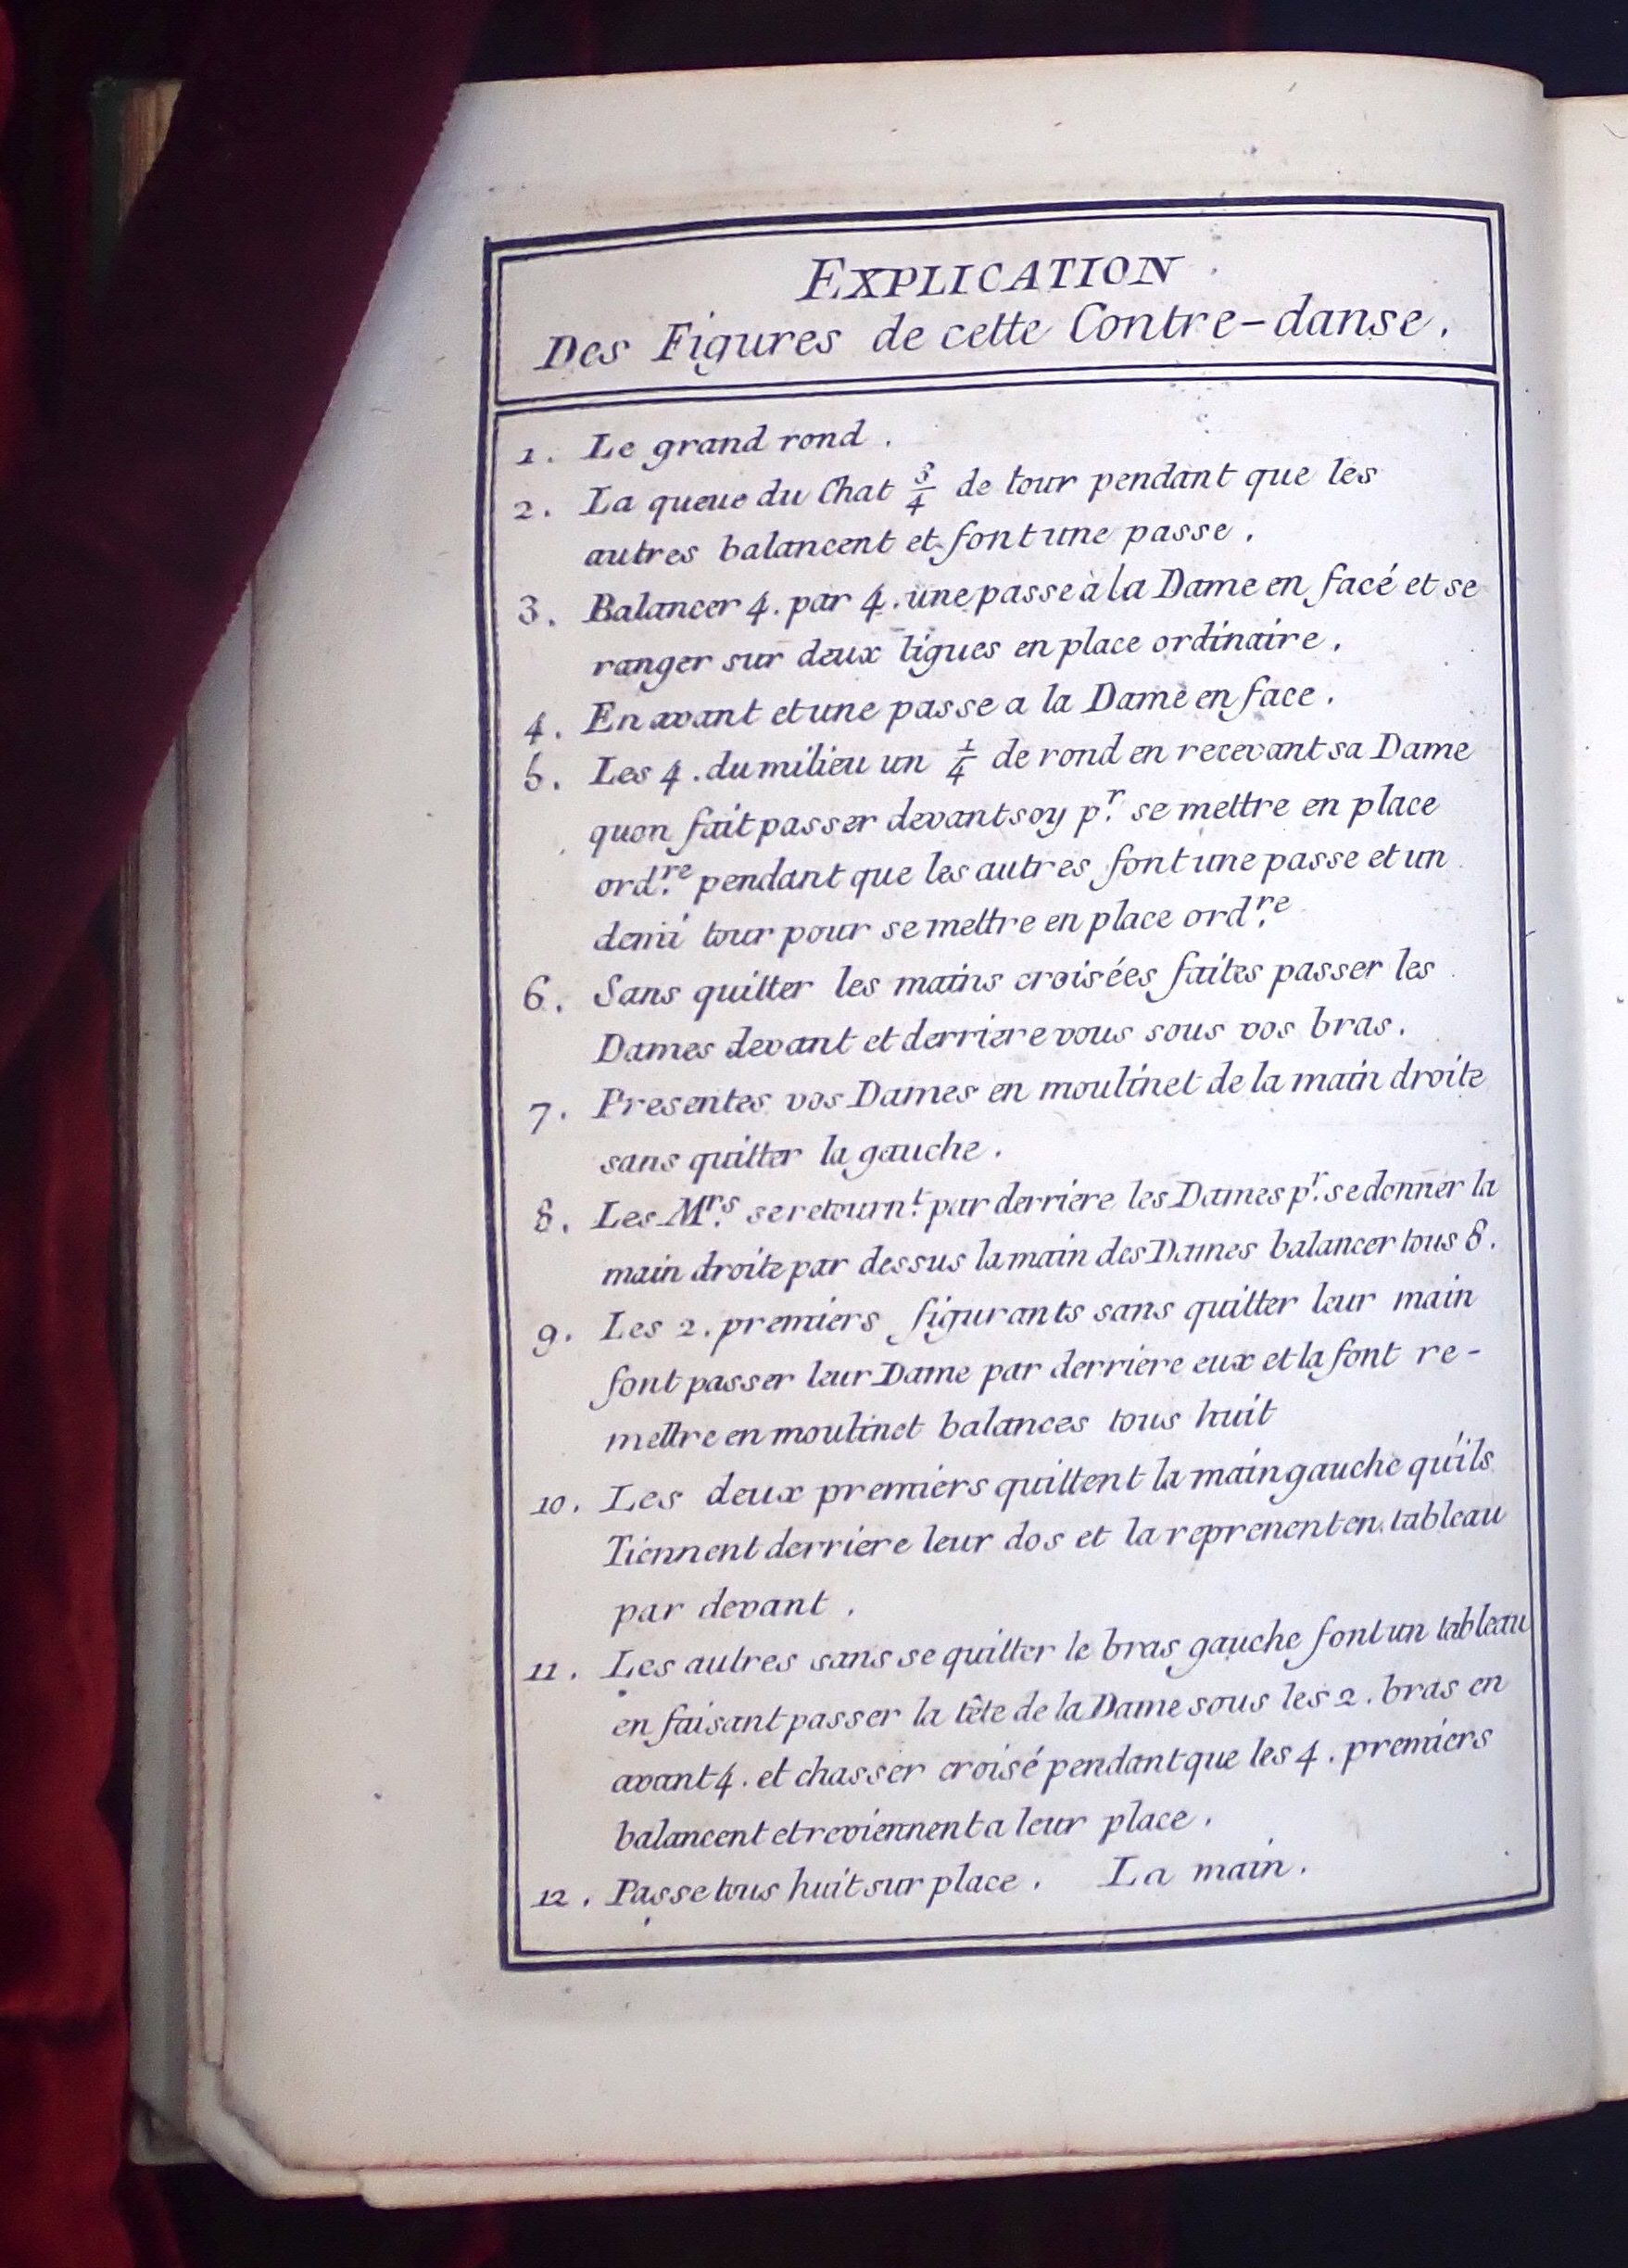 EXPLICATION.
Des Figures de cette Contre-danse.
1. Le grand rond.
2. La queue du Chat 3/4 de tour pendant que les
autres balancent et font une passe.
3. Balancer 4. par 4. une passe à la Dame en facé et se
ranger sur deux ligues en place ordinaire.
4. En avant et une passe a la Dame en face.
5. Les 4. du milieu un 1/4 de rond en recevant sa Dame
quon fait passer devant soy pr. se mettre en place
ord.re pendant que les autres font une passe et un
demi tour pour se mettre en place ord.re
6. Sans quitter les mains croisées faites passer les
Dames devant et derriere vous sous vos bras.
7. Presentes vos Dames en moulinet de la main droite
sans quitter la gauche.
8. Les Mrs. se retournt. par derriere les Dames pr. se donner la
main droite par dessus la main des Dames balancer tous 8.
9. Les 2. premiers figurants sans quitter leur main
font passer leur Dame par derriere eux et la font re-
mettre en moulinet balances tous huit
10. Les deux premiers quittent la main gauche qu'ils
Tiennent derriere leur dos et la reprenent en tableau
par devant.
11. Les autres sans se quitter le bras gauche font un tableau
en faisant passer la tête de la Dame sous les 2. bras en
avant 4. et chasser croisé pendant que les 4. premiers
balancent et reviennent a leur place.
12. Passe tous huit sur place. La main.